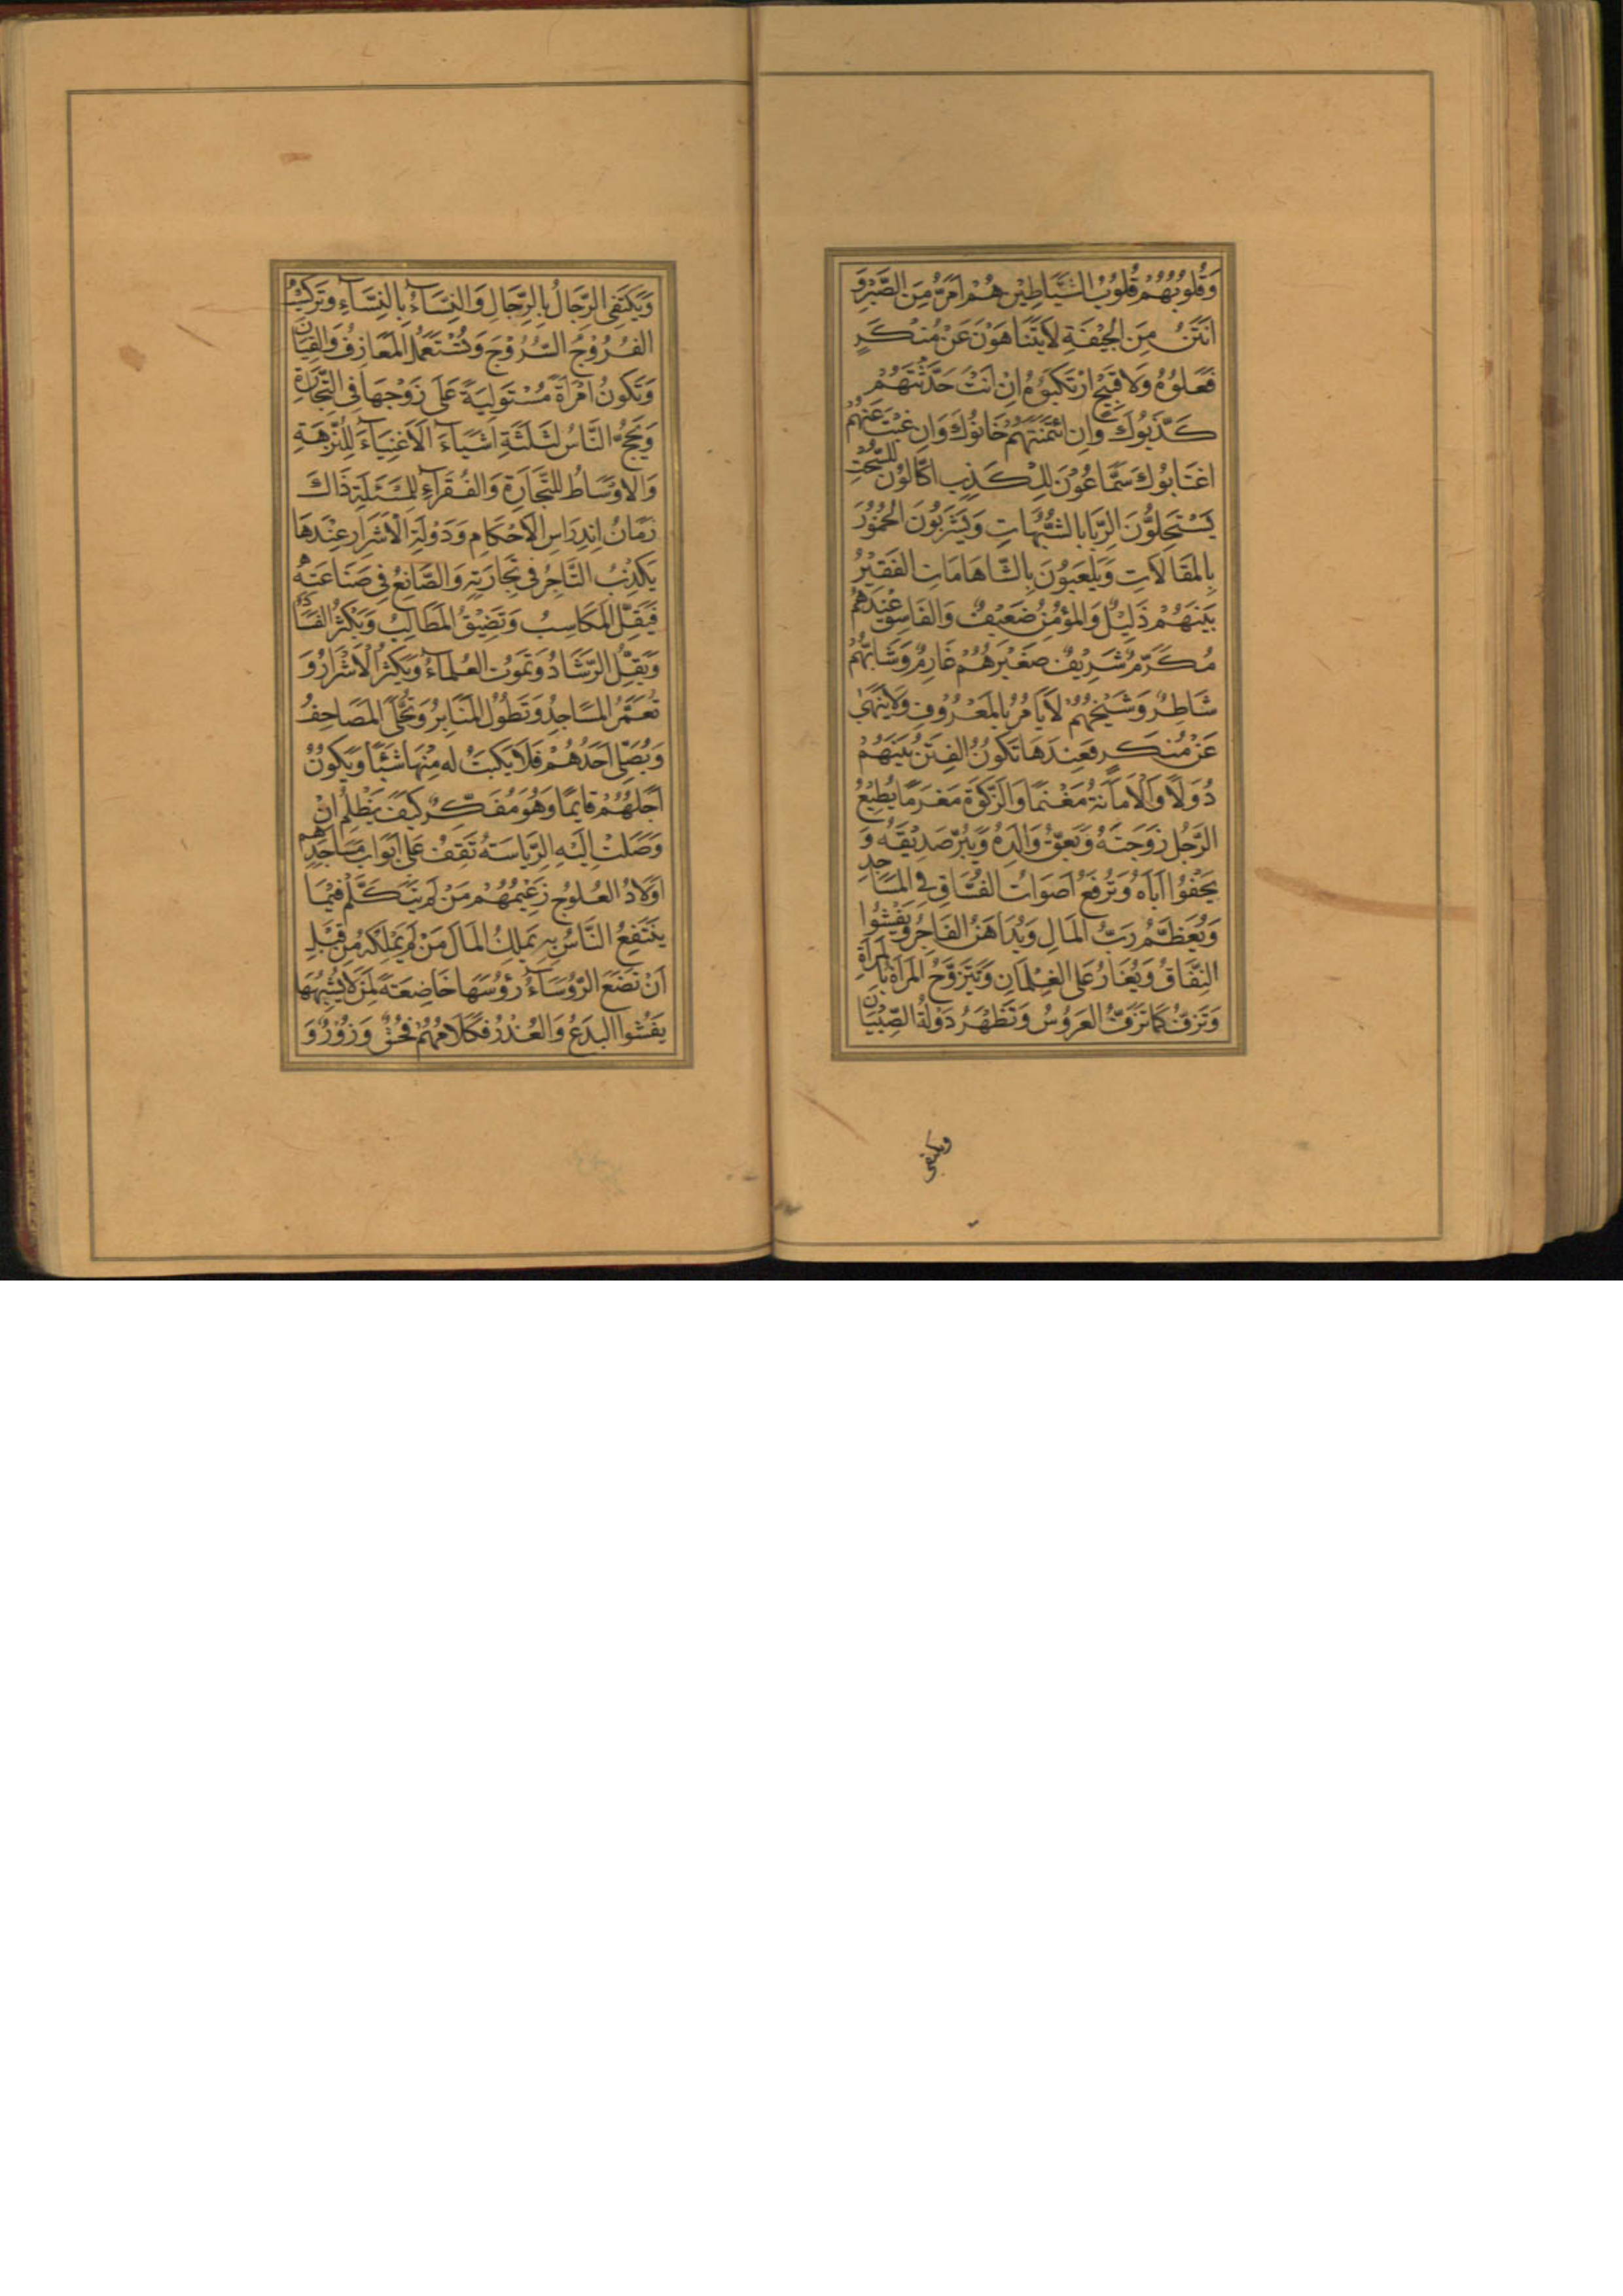 وَقُلُوبُهُمْ قُلُوبُ الشَّيَاطِيْنِ هُمْ اَمَرُّ مِنَ الصَّبْرِ وَ
اَنْتَنُ مِنَ الْجِيْفَةِ لَايَتَنَاهَوْنَ عَنْ مُنْكَرٍ
فَعَلُوْهُ وَلَا قَبِيْحٍ ارْتَكَبُوْهُ اِنْ اَنْتَ حَدَّثْتَهُمْ
كَذَّبُوكَ وَاِنِ ائْتَمَنْتَهُمْ خَانُوْكَ وَاِن غِبْتَ عَنْهُمْ
اغْتَابُوْكَ سَمَّاعُوْنَ لِلْكَذِبِ اَكَّالُوْن لِلسُّحْتِ
يَسْتَحِلُّوْنَ الرِّبَا بِالشُّبُهَاتِ وَيَشْرَبُوْنَ الخُمُوْرَ
بِالمَقَالَاتِ وَيَلْعَبُوْنَ بِالشَّاهَامَاتِ الفَقِيْرُ
بَيْنَهُمْ ذَلِيْلٌ وَالمُؤْمِنُ ضَعِيْفٌ وَالفَاسِقُ عِنْدَهُمْ
مُكَرَّمٌ شَرِيْفٌ صَغِيْرُهُمْ عَارِمٌ وَشَابُّهُمْ
شَاطِرٌ وَشَيْخُهُمْ لَايَأمُرُ بِالمَعْرُوفِ وَلَايَنْهٰى
عَنْ مُنْكَرٍ فَعِنْدَهَا تَكُوْنُ الفِتَنُ بَيْنَهُمْ
دُوَلًا وَالْاَمَانَةُ مَغْنَمًا وَالزَّكٰوةُ مَغْرَمًا يُطِيْعُ
الرَّجُلُ زَوْجَتَهُ وَيَعُقُّ وَالِدَهُ وَيَبِرُّ صَدِيْقَهُ وَ
يَجْفُوْا اَبَاهُ وَتُرْفَعُ اَصْوَاتُ الفُسَّاقِ فِى المَسَاجِدِ
وَيُعَظَّمُ رَبُّ المَالِ وَيُدَاهَنُ الفَاجِرُ وَيَفْشُوْا
النِّفَاقُ وَيُغَارُ عَلَى الغِلْمَانِ وَتَتَزَوَّجُ المَرْاَةُ بِالمَرْاَةِ
وَتُزَفُّ كَمَا تُزَفُّ العَرُوْسُ وَتَظْهَرُ دَوْلَةُ الصِّبْيَانِ
ويكتفى
وَيَكْتَفِى الرِّجَالُ بِالرِّجَالِ وَالنِّسَآءُ بِالنِّسَآءِ وَتَرْكَبُ
الفُرُوْجُ السُّرُوْجَ وَتُسْتَعْمَلُ المَعَازِفُ وَالقِيَانُ
وَتَكُونُ امْرَاَةٌ مُسْتَوْلِيَةً عَلَى زَوْجِهَا فِى التِّجَارَةِ
وَيَحُجُّ النَّاسُ لِثَلٰثَةِ اَشْيَآءَ الْاَغْنِيَآءَ لِلنُّزْهَةِ
وَالاَوْسَاطُ لِلتِّجَارَةِ وَالفُقَرَآءِ لِلمَسْئَلَةِ ذَاكَ
زَمَانُ اِنْدِرَاسِ الْاَحْكَامِ وَدَوْلَةِ الْاَشْرَارِ عِنْدَهَا
يَكْذِبُ التَّاجِرُ فِى تِجَارَتِهِ وَالصَّانِعُ فِى صَنَاعَتِهِ
فَيَقِلُّ المَكَاسِبُ وَتَضِيْقُ المَطَالِبُ وَيَكْثُرُ الفَسَادُ
وَيَقِلُّ الرَّشَادُ وَتَمُوْتُ العُلَمَآءُ وَيَكْثُرُ الْاَشْرَارُ وَ
تُعَمَّرُ المَسَاجِدُ وَتَطُوْلُ المَنَابِرُ وَتُحَلَّى المَصَاحِفُ
وَيُصَلِّى اَحَدُهُمْ فَلَا يَكْتُبُ له مِنْهَا شَيْئًا وَيَكُوْنُ
اَجَلُّهُمْ قَايِمًا وَهُوَ مُفَكِّرٌ كَيْفَ يَظْلِمُ اِنْ
وَصَلَتْ اِلَيْهِ الرِّيَاسَةُ تَقِفُ عَلَى اَبْوَابِ مَسَاجِدِهِمْ
اَوْلَادُ العُلُوْجِ زَعِيْمُهُمْ مَنْ لَمْ يَتَكَلَّمْ فِيْمَا
يَنْتَفِعُ النَّاسُ بِهِ يَمْلِكُ المَالَ مَنْ لَمْ يَمْلِكْهُ مِنْ قَبْلِ
اَنْ تَضَعَ الرُّؤَسَآءُ رُؤُسَهَا خَاضِعَةً لِمَنْ لَايُشْبِهُهَا
يَفْشُوا البِدَعُ وَالعُذْرُ فَكَلَامُهُمْ فُحْشٌ وَزُوْرٌ وَ